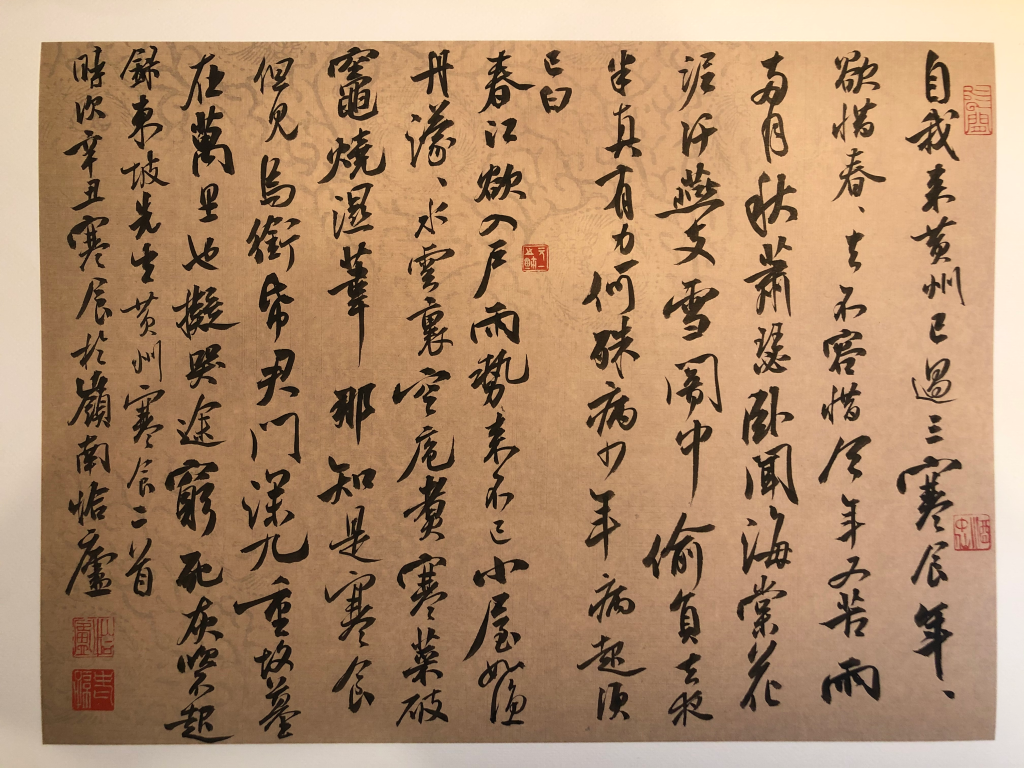 自我来黄州已過三寒食年、
欲惜春、去不容惜今年又苦雨
两月秋蕭瑟卧聞海棠花
泥汙燕支雪闇中偷負去夜
半真有力何殊病少年病起須
已白
春江欲入户雨勢来不已小屋如漁
舟濛、水雲裏空庖煮寒菜破
竈燒濕葦那知是寒食
但見烏銜帋君門深九重坟墓
在萬里也擬哭途窮死灰吹不起
録東坡先生黄州寒食二首
時次辛丑寒食於嶺南怡廬